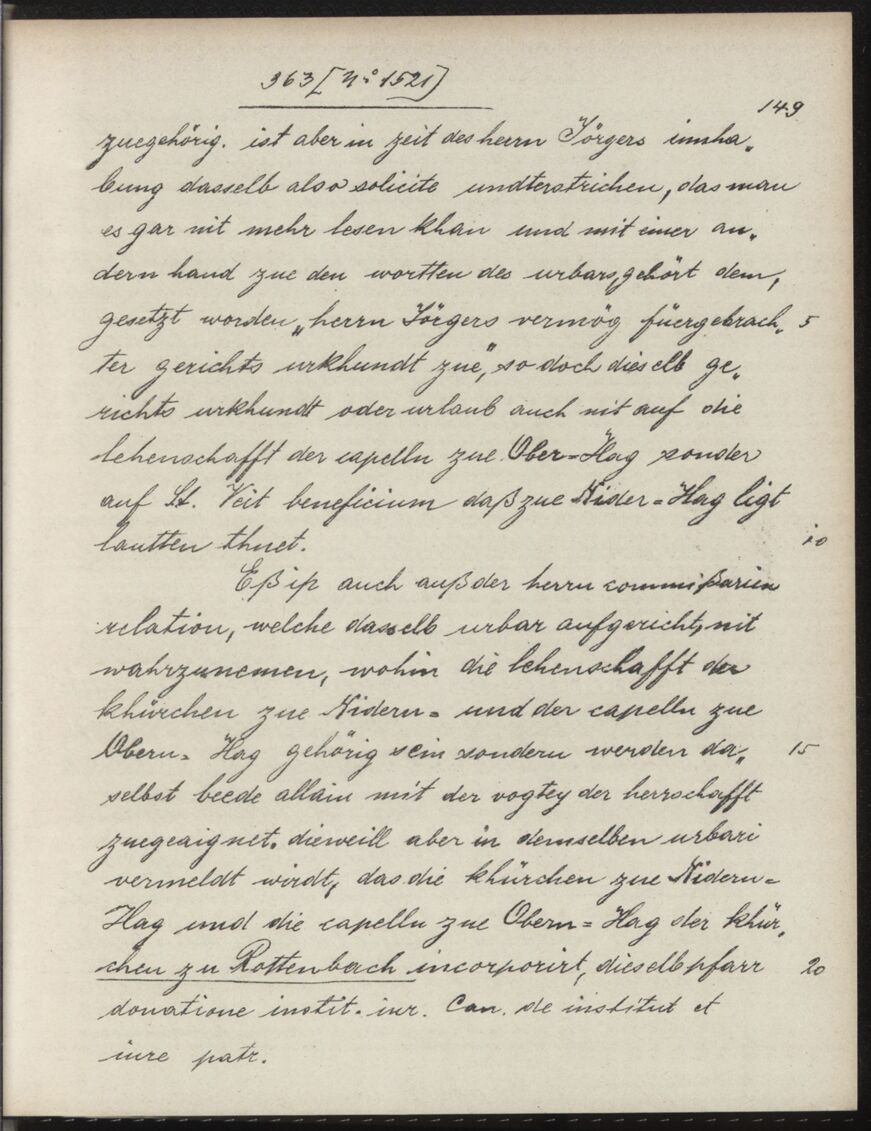 363 [N° 1521]
149
zuegehörig. ist aber in zeit des herrn Jörgers innha„
bung dasselb also solicite undterstrichen, das man
es gar nit mehr lesen khan und mit einer an„
dern hand zue den wortten des urbars, gehört dem,
gesetzt worden „herrn Jörgers vermög füergebrach„ 5
ter gerichts urkhundt zue", so doch dieselb ge„
richts urkhundt oder urlaub auch nit auf die
lehenschafft der capelln zue Ober=Hag sonder
auf St. Veit beneficium daß zue Nider=Hag ligt
lautten thuet. 10
Eß iſt auch auß der herrn commißarien
relation, welche dasselb urbar aufgericht, nit
wahrzunemen, wohin die lehenschafft der
khürchen zue Nidern= und der capelln zue
Obern=Hag gehörig sein sondern werden da„ 15
selbst beede allain mit der vogtey der herrschafft
zuegeaignet. dieweill aber in demselben urbari
vermeldt wirdt, das die khürchen zue Nidern=
Hag und die capelln zue Obern=Hag der khür„
chen zu Rottenbach incorporirt, dieselb pfarr 20
donatione instit. iur. Can. de institut et
iure patr.